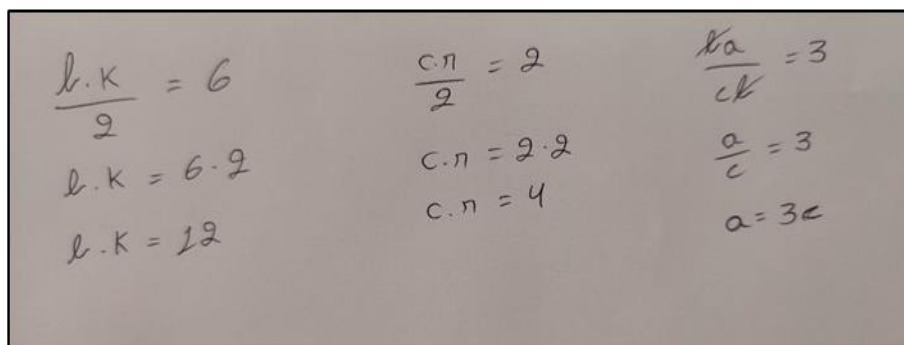 b.K/2 = 6
b.K = 6.2
b.K = 12
c.n/2 = 2
c.n = 2.2
c.n = 4
ba/cb = 3
a/c = 3
a = 3c